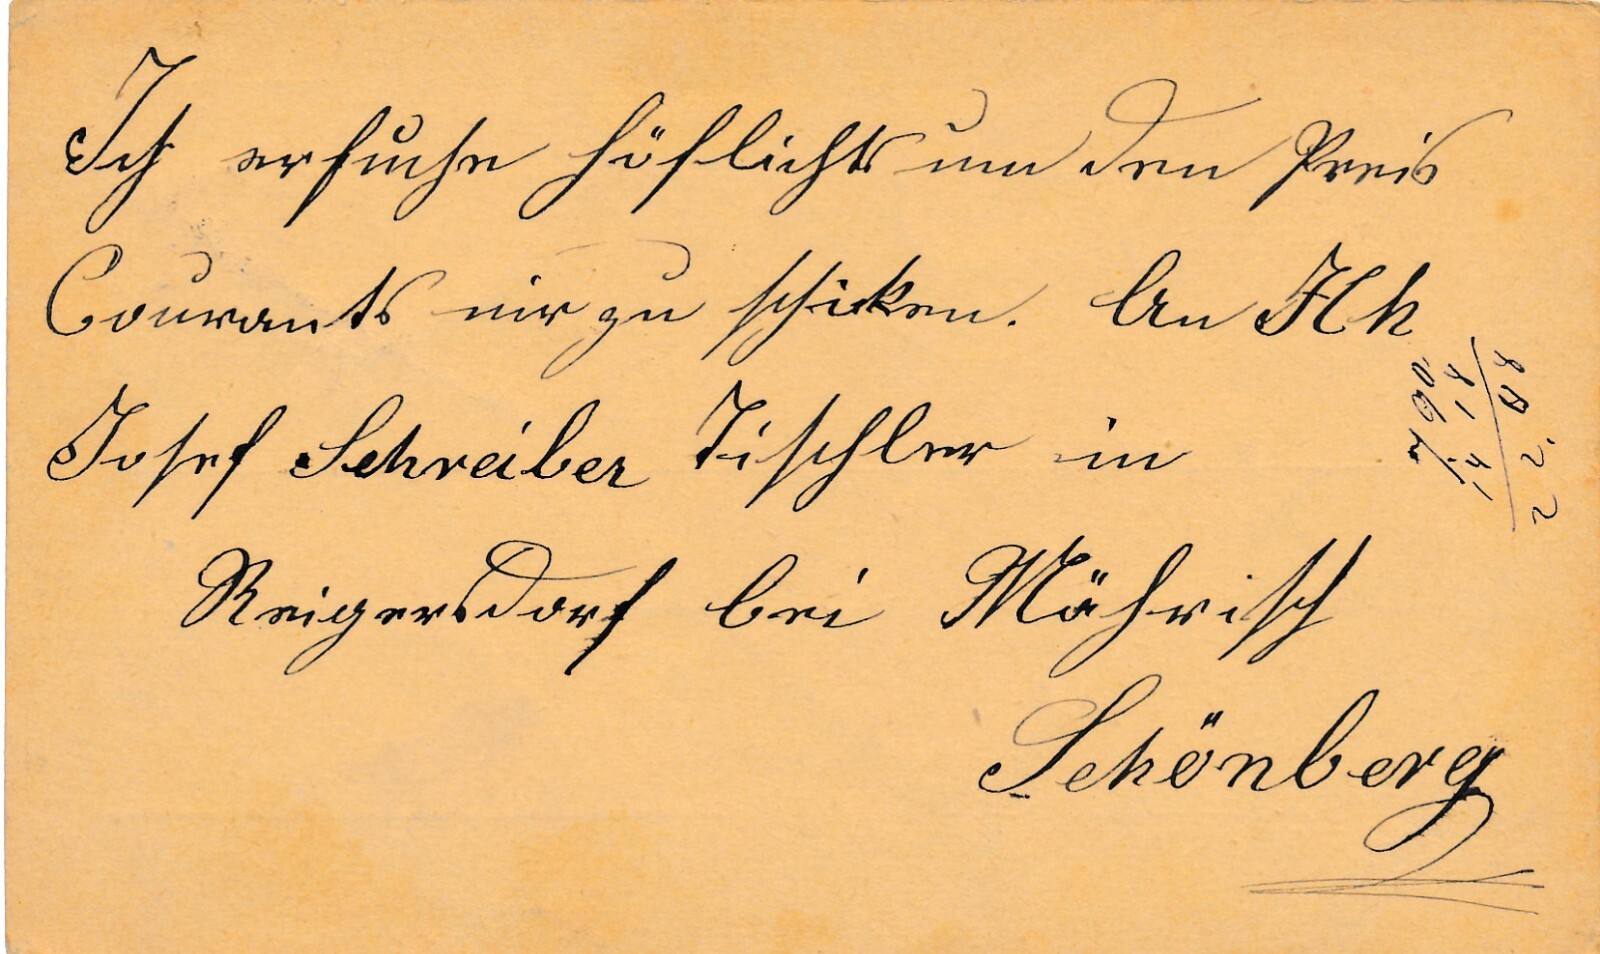 Ich ersuche höflichts um den Preis
Courants mir zu schiken. An
Josef Schreiber Tischler in
Reigersdorf bei Mährisch
Schönberg